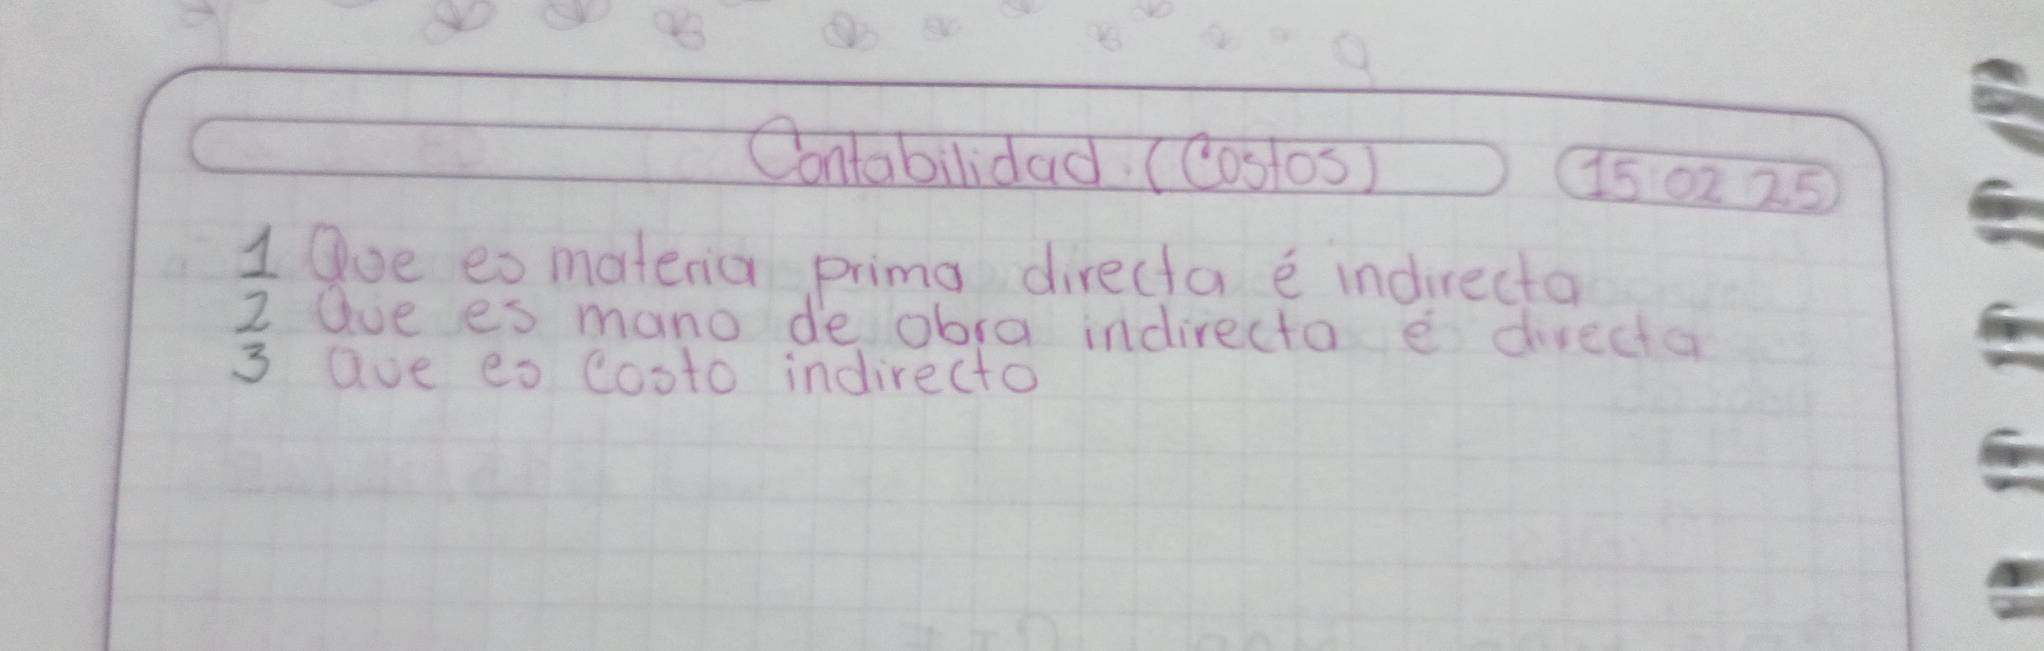 Contabilidad. (Costos)
15 02 25
1 Que es materia prima directa é indirecta
2 Que es mano de obra indirecta é directa
3 Que es Costo indirecto